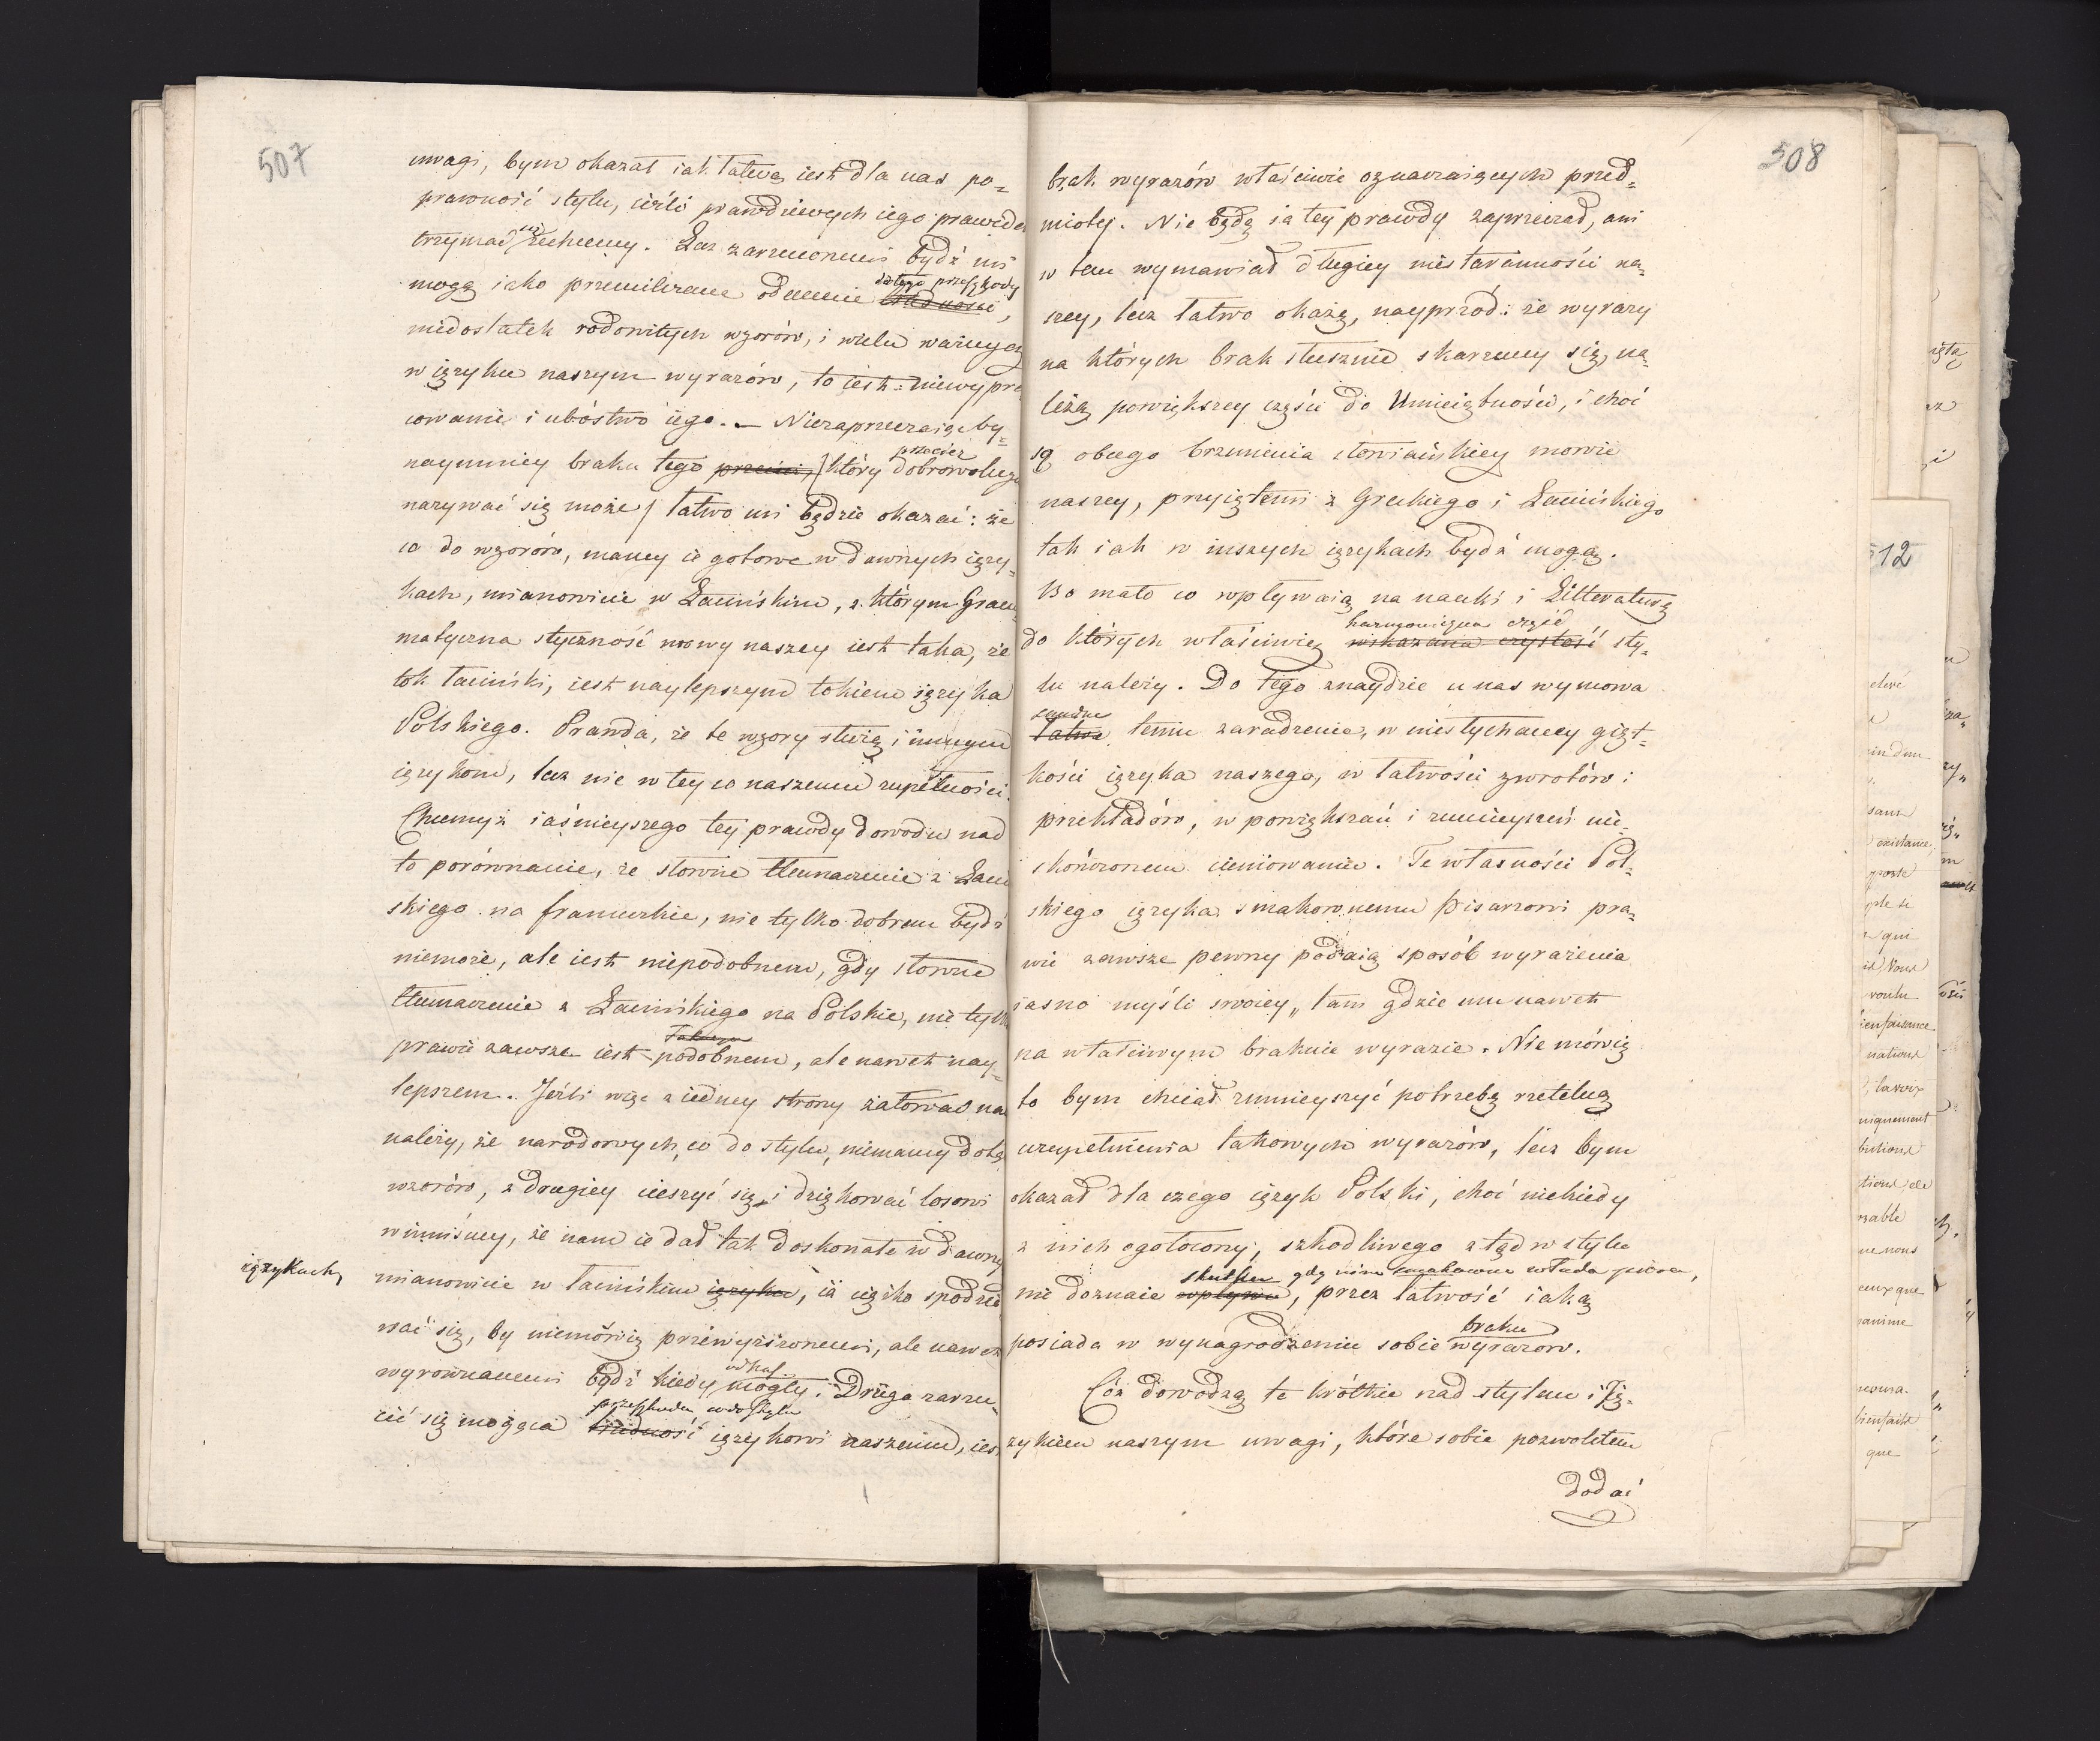 507
uwagi, bym okazał iak łatwą iest dla nas po=
prawność stylu, ieźli prawdziwych iego prawideł
trzymać się zechcemy. Lecz zarzuconemi bydź mi
mogą iako przemilczane odemnie dotego przeszkody
trudności,
niedostatek rodowitych wzorów, i wielu ważnych
w ięzyku naszym wyrazów, to iest: niewypra
cowanie i ubóstwo iego. — Niezaprzeczaiąc by=
naymniey braku tego przecież, (który przecież dobrowolnym
nazywać się może) łatwo mi będzie okazać: że
co do wzorów, mamy ie gotowe w dawnych ięzy=
kach, mianowicie w Łacińskim, z którym Gram
matyczna styczność mowy naszey iest taka, że
tok łaciński, iest naylepszym tokiem ięzyka
Polskiego. Prawda, że te wzory służą i innym
ięzykom, lecz nie w tey co naszemu zupełności.
Chcemyż iaśnieyszego tey prawdy dowodu nad
to porównanie, że słowne tłumaczenie z Łaciń
skiego na francuzkie, nie tylko dobrem bydź
niemoże, ale iest niepodobnem, gdy słowne
tłumaczenie z Łacińskiego na Polskie, nie tylko
prawie zawsze iest podobnem, ale nawet nay=
lepszem. Jeźli więc z iedney strony żałować nam
należy, że narodowych, co do stylu, niemamy dotąd
wzorów, z drugiey cieszyć się i dziękować losowi
winniśmy, że nam ie dał tak doskonałe w dawnych
ięzykach,
mianowicie w łacińskim ięzyku, iż ciężko spodzie
wać się, by niemówię przewyższonemi, ale nawet
wyrównanemi bydź kiedy mogły. Druga zarzu=
przeszkoda co do stylu
cić się mogąca trudność ięzykowi naszemu, iest
508
brak wyrazów właściwie oznaczaiących przed=
mioty. Nie będę ia tey prawdy zaprzeczać, ani
w tem wymawiać długiey niestaranności na=
szey, lecz łatwo okażę, nayprzód: że wyrazy
na których brak słusznie skarzemy się, na=
leżą powiększey części do Umieiętności, i choć
są obcego brzmienia słowiańskiey mowie
naszey, przyiętemi z Greckiego i Łacińskiego
tak iak w inszych ięzykach bydź mogą.
Bo mało co wpływaią na nauki i Litteraturę
harmoniyna część
do których właściwie wskazana czystość sty=
lu należy. Do tego znaydzie u nas wymowa
łatwe temu zaradzenie, w niesłychaney gięt=
kości ięzyka naszego, w łatwości zwrotów i
przekładów, w powiększań i zmnieyszeń nie=
skończonem cieniowaniu. Te własności Pol=
skiego ięzyka smakownemu pisarzowi pra=
wie zawsze pewny podaią sposób wyrażenia
iasno myśli swoiey, tam gdzie mu nawet
na właściwym braknie wyrazie. Nie mówię
to bym chciał zmnieyszyć potrzebę rzetelną
uzupełnienia takowych wyrazów, lecz bym
okazał dla czego ięzyk Polski, choć niekiedy
z nich ogołocony, szkodliwego ztąd w stylu
skutku gdy nim smakowne włada pióro,
nie doznaie wpływu, przez łatwość iaką
posiada w wynagrodzeniu sobie braku wyrazów.
Cóż dowodzą te krótkie nad stylem i Ję=
zykiem naszym uwagi, które sobie pozwoliłem
dodać
512